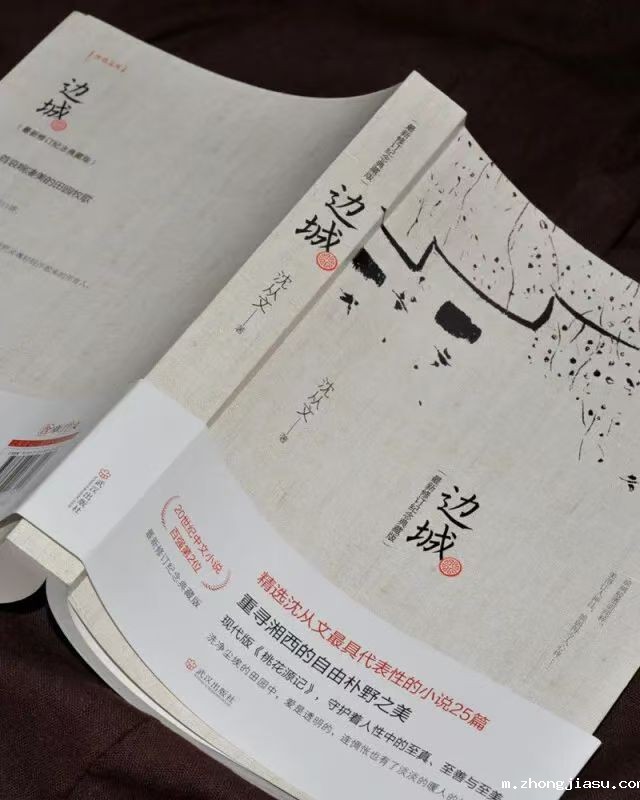 边城
（最新修订纪念典藏版）
（最新修订纪念典藏版）
边城
沈从文 著
武汉出版社
沈从文 著
（最新修订纪念典藏版）
边城
20世纪中文小说
百强第2位
最新修订纪念典藏版
精选沈从文最具代表性的小说25篇
重寻湘西的自由朴野之美
现代版《桃花源记》，守护着人性中的至真、至善与至美
洗净尘埃的田园中，爱是透明的，连惆怅也有了淡淡的暖人的
武汉出版社
m.zhongjiasu.com